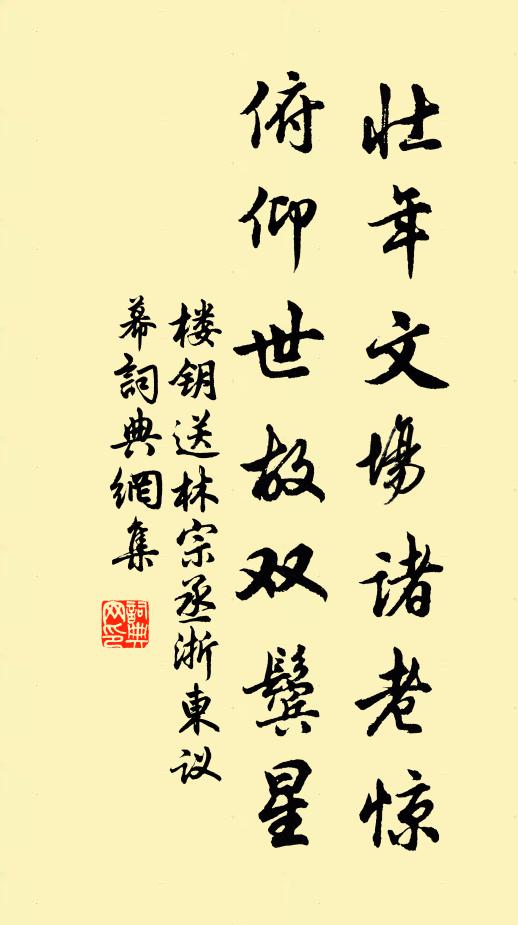 壮年文場诸老惊
俯仰世故双鬓星
楼钥送林宗丞浙東议
幕詞典網集
詞典网印